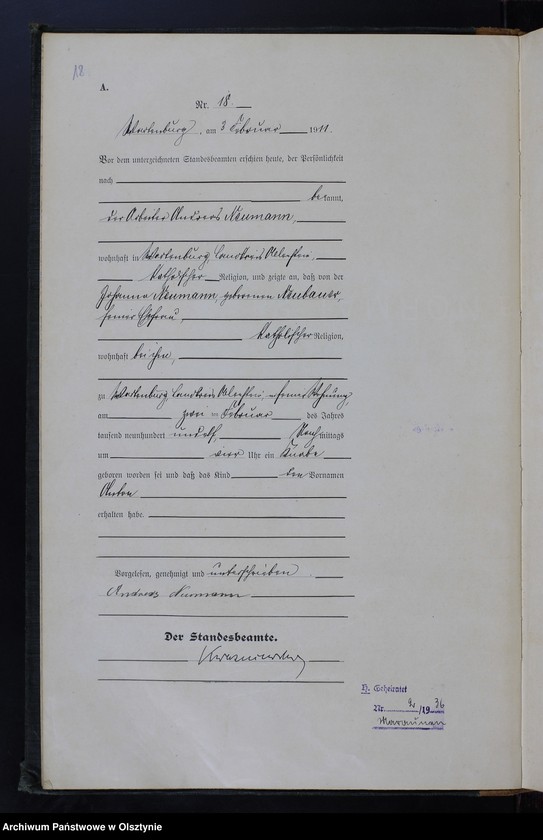 18
A.
Nr. 18.
Wartenburg, am 3 Februar 1911.
Vor dem unterzeichneten Standesbeamten erschien heute, der Persönlichkeit
nach
bekannt,
der Arbeiter Andreas Neumann,
wohnhaft in Wartenburg, Landkreis Allenstein,
katholischer Religion, und zeigte an, daß von der
Johanna Neumann, geborenen Neubauer,
seiner Ehefrau
katholischer Religion,
wohnhaft bei ihm,
zu Wartenburg Landkreis Allenstein, in seiner Wohnung
am zwei ten Februar des Jahres
tausend neunhundert und elf, Nachmittags
um vier Uhr ein Knabe
geboren worden sei und daß das Kind den Vornamen
Anton
erhalten habe.
Vorgelesen, genehmigt und unterschrieben
Andreas Neumann
Der Standesbeamte.
H. Geheiratet
Nr. /19 36
Maraunen
Archiwum Państwowe w Olsztynie